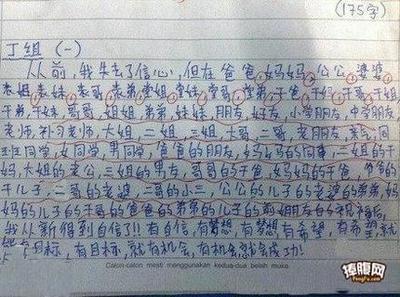 (175字)
丁组 (一)
从前,我失去了信心,但在爸爸,妈妈,公公,婆婆
表姐,表妹,表哥,表弟,堂姐,堂妹,堂哥,堂弟,干爸,干妈,干哥,干姐,
干弟,干妹,哥哥,姐姐,弟弟,妹妹,朋友,好友,小学朋友,中学朋友,
老师,补习老师,大姐,二姐,三姐,大哥,二哥,老朋友,
班同学,女同学,男同学,爸爸的朋友,妈妈的同事,二姐的干
妈,大姐的老公,三姐的男友,哥哥的女友,妈妈的干爸,爸爸的
干儿子,二哥的老婆,二哥的小三,公公的儿子的老婆的弟弟,妈
妈的儿子的干哥的爸爸的弟弟的儿子的前期朋友的祝福后,
我从新得到自信了!!有自信,有梦想,有梦想有希望,有希望,就
有目标,有目标,就有机会,有机会总会成功!
Calon-calon mesti menggunakan kedua-dua belah muka
捧腹网
PengFu.com